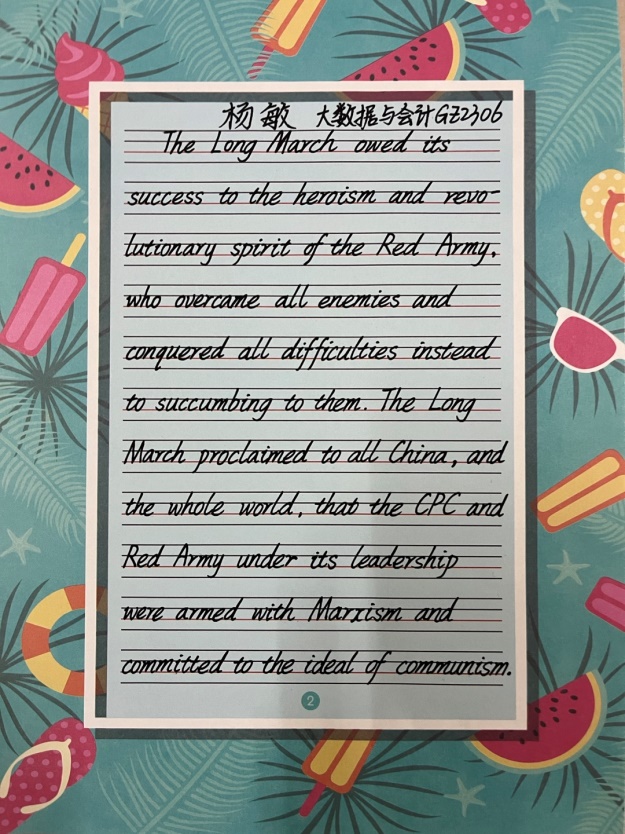 杨敏 大数据与会计GZ2306
The Long March owed its
success to the heroism and revo-
lutionary spirit of the Red Army,
who overcame all enemies and
conquered all difficulties instead
to succumbing to them. The Long
March proclaimed to all China, and
the whole world, that the CPC and
Red Army under its leadership
were armed with Marxism and
committed to the ideal of communism.
2